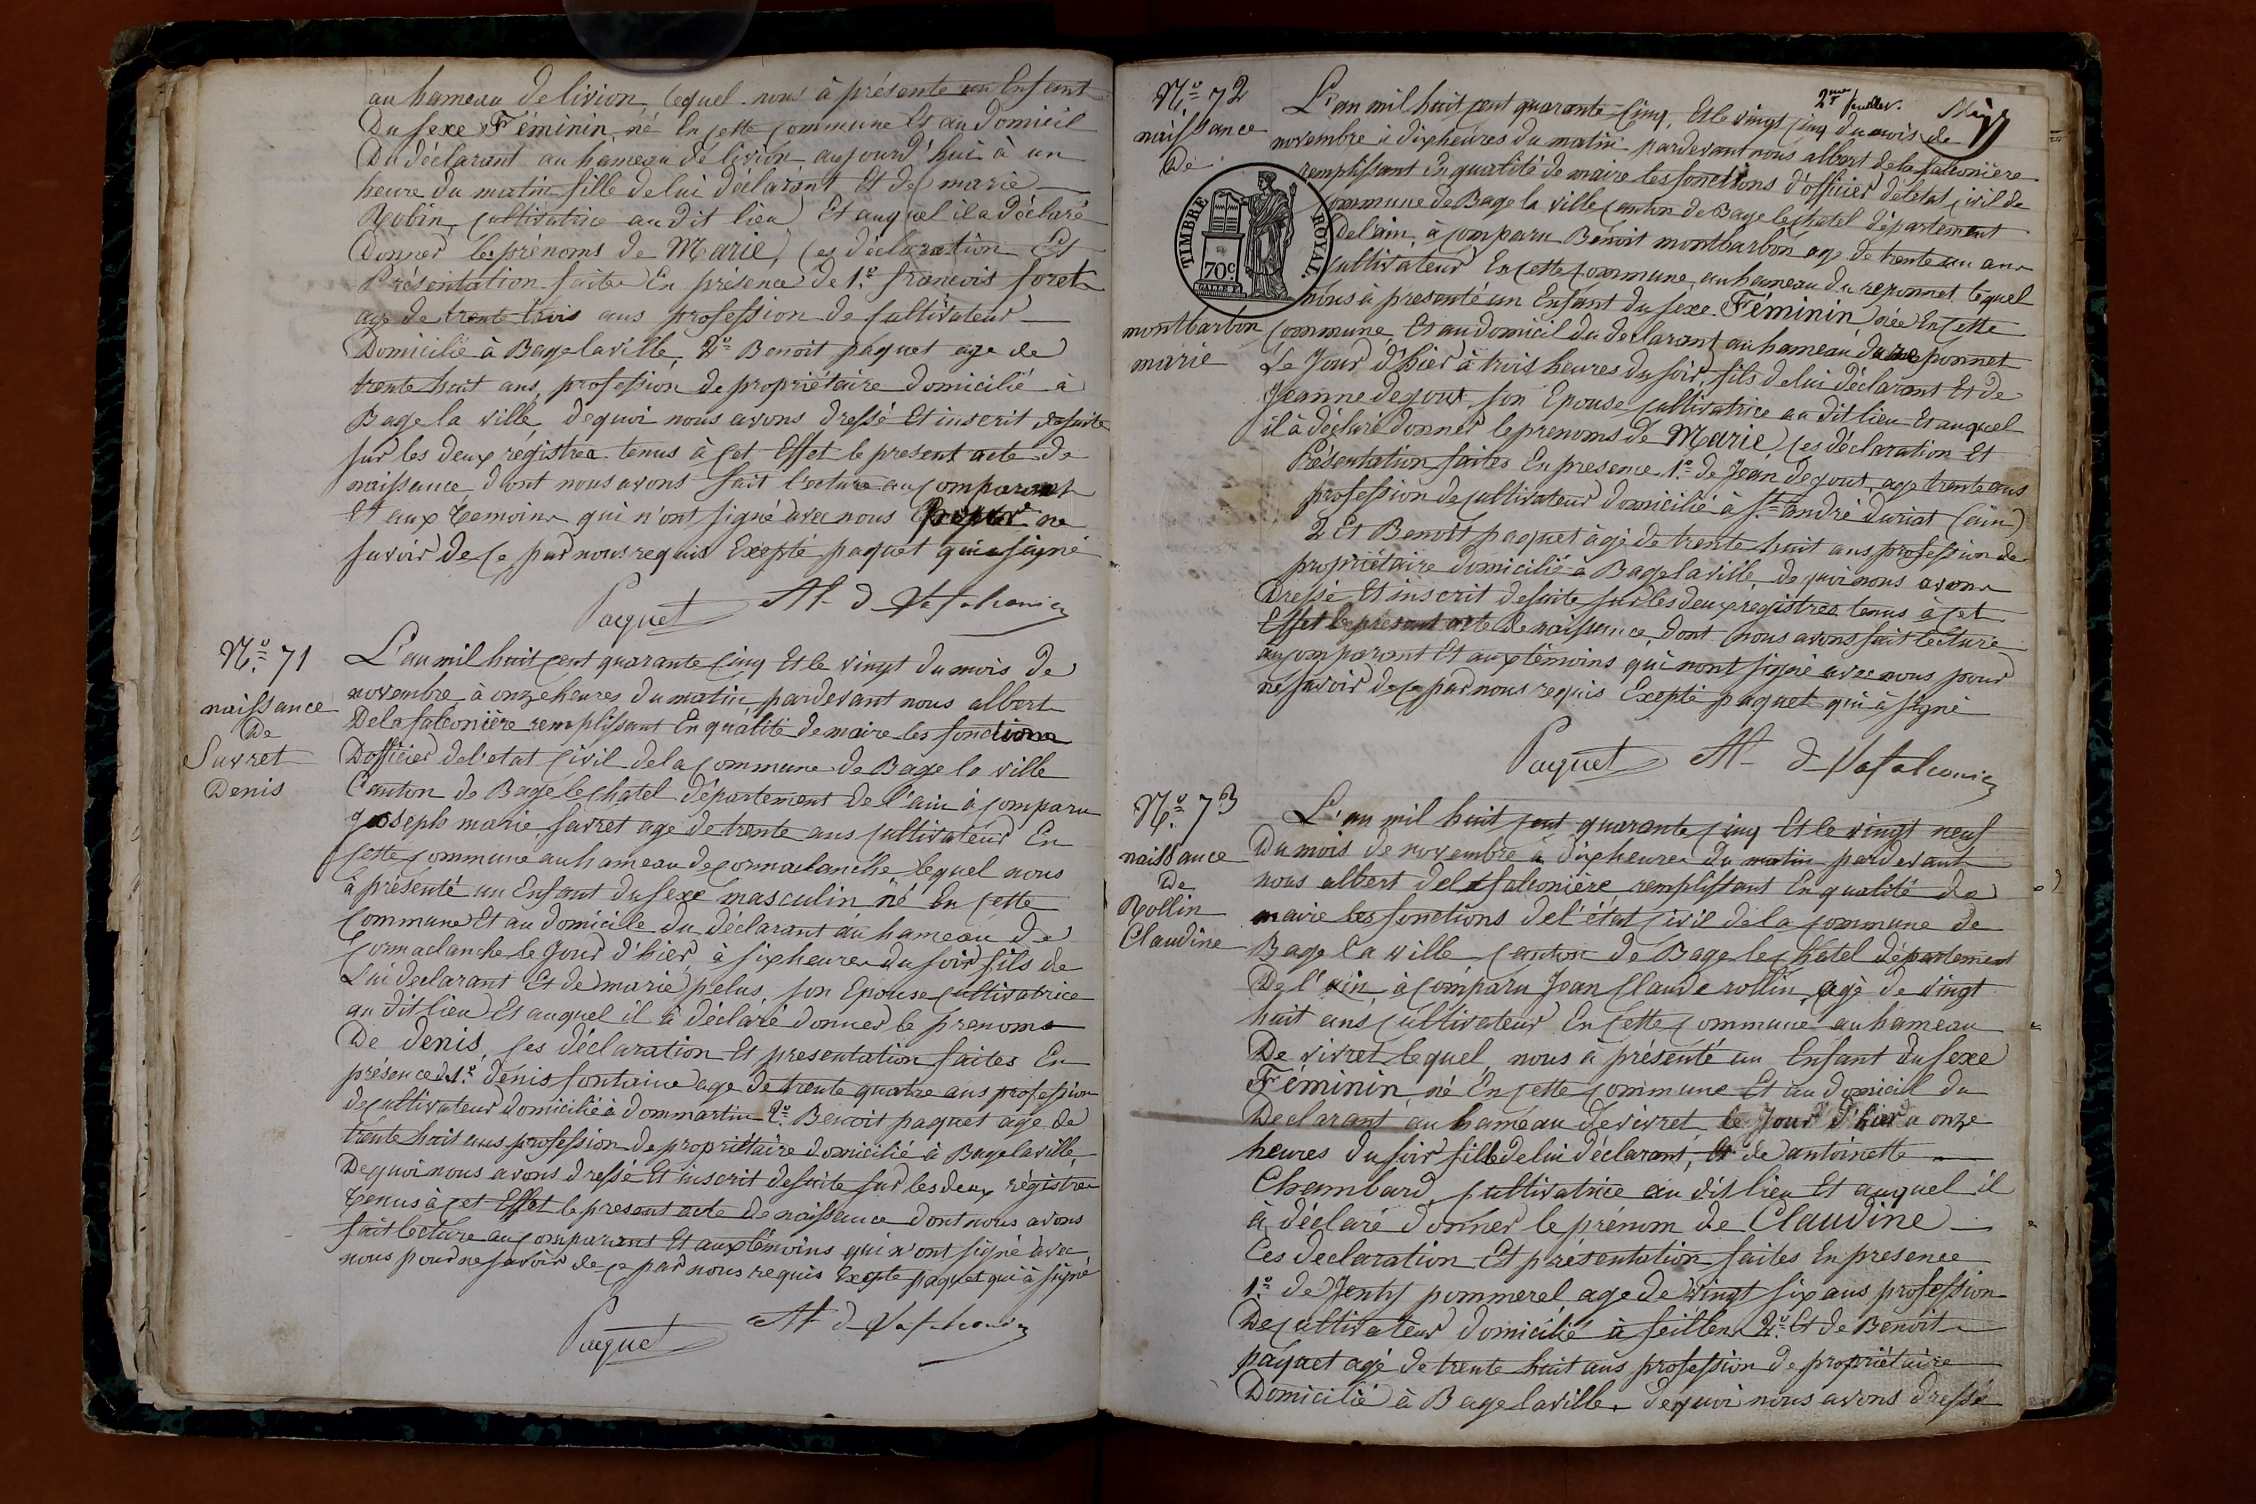 au hameau de livion, lequel nous à présente un Enfant
Du sexe Féminin, né En cette commune Et au Domicil
Du déclarant au hameau de livion aujourd'hui à un
heure du matin fille de lui déclarant Et de marie
Robin, cultivatrice au dit lieu Et auquel il a déclaré
Donner les prénoms de Marie, ces déclaration Et
Présentation faite En présence de 1.o francois foret
age de trente trois ans profession de cultivateur
Domicilié à Bagelaville, 2.o Benoit paquet age de
trente huit ans, profession de propriétaire domicilié à
Bage la ville, dequoi nous avons dressé Et inscrit desuite
sur les deux registres tenus à cet Effet le present acte de
naissance dont nous avons fait lecture au comparant
Et aux temoins qui n'ont signé avec nous pour ne
savoir de ce par nous requis Exepté paquet qui a signé
Paquet
N.o 71
naissance
De
Suvret
Denis
L'an mil huit cent quarante cinq Et le vingt du mois de
novembre à onze heures du matin, pardevant nous albert
Delafalconière remplissant En qualité de maire les fonctions
D'officier del'etat civil dela commune de Bage la ville
Canton de Bagé le chatel département de l'ain à comparu
joseph marie suvret age de trente ans cultivateur En
cette commune au hameau de cormaclanche lequel nous
à présenté un Enfant du sexe masculin né En cette
commune Et au domicile du déclarant au hameau de
Cormaclanche le Jour d'hier à six heures du soir fils de
Lui declarant Et de marie pelus, son Epouse cultivatrice
au dit lieu Et auquel il à déclaré donner le prenoms
De denis, ces déclaration Et presentation faites En
présence de 1.o denis fontaine age de trente quatre ans profession
de cultivateur domicilié à dommartin 2.o Benoit paquet age de
trente huit ans profession de propriétaire domicilié à Bagelaville
Dequoi nous avons dressé Et inscrit desuite sur les deux régistres
tenus à cet Effet le present acte de naissance dont nous avons
fait lecture au comparant Et aux témoins qui n'ont signé avec
nous pour ne savoir de ce par nous requis Exepte paquet qui à signé
Paquet
2me feuillet.
N.o 72
naissance
De
montbarbon
marie
TIMBRE ROYAL.
70c
L'an mil huit cent quarante-cinq, Et le vingt cinq du mois de
novembre à dix heures du matin pardevant nous albert de la falconière
remplissant En qualité de maire les fonctions d'officier de l'etat civil de
commune de Bage la ville canton de Bage le chatel département
Del'ain, à comparu Benoit montbarbon age de trente un ans
cultivateur En cette commune, au hameau du reponnet lequel
nous à presenté un Enfant du sexe Féminin née En cette
commune Et au domicil du declarant au hameau du reponnet
Le Jour d'hier à trois heures du soir, fils de lui déclarant Et de
Jeanne degout son Epouse cultivatrice au dit lieu Et auquel
il à déclaré donner le prenoms de Marie, ces déclaration Et
Présentation faites En presence 1.o de Jean degout, age trente ans
profession de cultivateur domicilié à St andré duriat (ain)
2 Et Benoit paquet àgé de trente huit ans profession de
propriétaire domicilié à Bagelaville, de quoi nous avons
Dressé Et inscrit desuite sur les deux régistres tenus à cet
Effet le present acte de naissance, dont nous avons fait lecture
au comparant Et aux témoins qui nont signé avec nous pour
ne savoir de ce par nous requis Exepté paquet qui à signé
Paquet
N.o 73
naissance
De
Rollin
Claudine
L'an mil huit cent quarante cinq Et le vingt neuf
Du mois de novembre à dix heures du matin pardevant
nous albert delafalconière, remplissant En qualité de
maire les fonctions de l'état civil dela commune de
Bage la ville canton de Bage le chatel département
De l'ain à comparu Jean Claude rollin, agé de vingt
huit ans, cultivateur En cette commune au hameau
De vivret lequel nous à présenté un Enfant du sexe
Féminin né En cette commune Et au domicil du
Declarant au hameau de vivret le Jour d'hier a onze
heures du soir fille de lui déclarant, Et de antoinette
Chambard, cultivatrice au dit lieu Et auquel il
à déclaré donner le prénom de Claudine
Ces declaration Et présentation faites En presence
1.o de Jenty pommerel age de vingt six ans profession
De cultivateur domicilié à feillens 2.o Et de Benoit
paquet agé de trente huit ans profession de propriétaire
Domicilié à Bagelaville, dequoi nous avons dressé